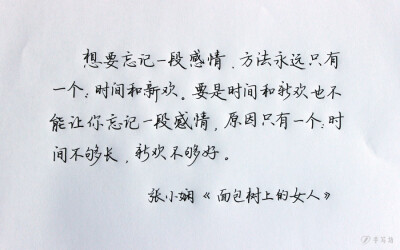 想要忘记一段感情，方法永远只有
一个：时间和新欢。要是时间和新欢也不
能让你忘记一段感情，原因只有一个：时
间不够长，新欢不够好。
张小娴《面包树上的女人》